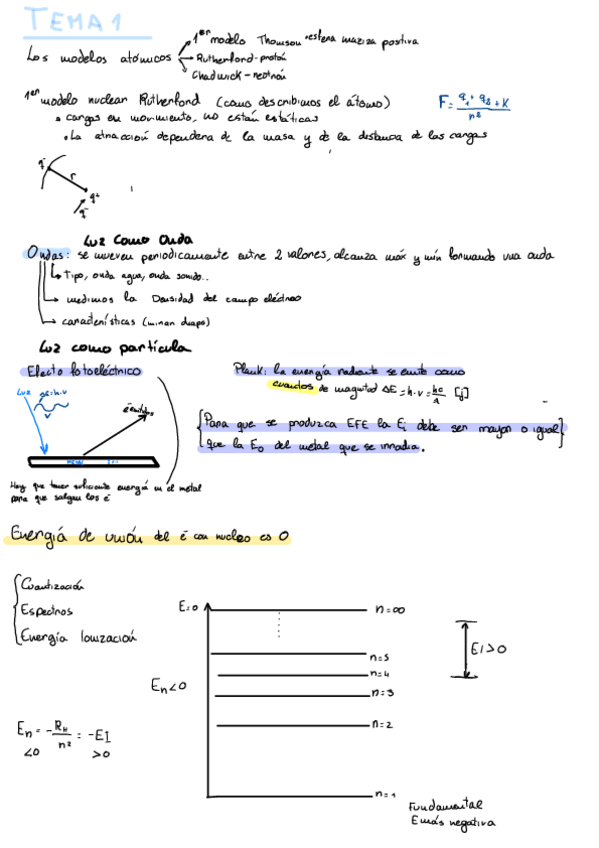 TEMA 1
1er modelo Thomson esfera maziza positiva
Los modelos atómicos
Rutherford - protón
Chadwick - neutrón
1er modelo nuclear Rutherford (como describimos el átomo)
F = q1 + q2 + K / n²
• cargas en movimiento, no están estáticas
• La atracción dependera de la masa y de la distancia de las cargas
q-
r
q+
q-
Luz como Onda
Ondas: se mueven periodicamente entre 2 valores, alcanza máx y mín formando una onda
Tipo, onda agua, onda sonido..
medimos la Densidad del campo eléctrico
características (miran diapo)
Luz como partícula
Efecto fotoeléctrico
Plank: la energía radiante se emite como
cuantos de magnitud ΔE = h·ν = hc/λ [J]
Luz ΔE=h·ν
ν
ē emitidos
Para que se produzca EFE la Ei debe ser mayor o igual
que la E0 del metal que se irradia.
METAL
Hay que tener suficiente energía en el metal
para que salgan los ē
Energía de unión del ē con nucleo es 0
Cuantización
Espectros
Energía Ionización
E=0
n=∞
EI>0
n=5
n=4
En<0
n=3
n=2
En = - RH / n² = -EI
<0 >0
n=1
Fundamental
E más negativa